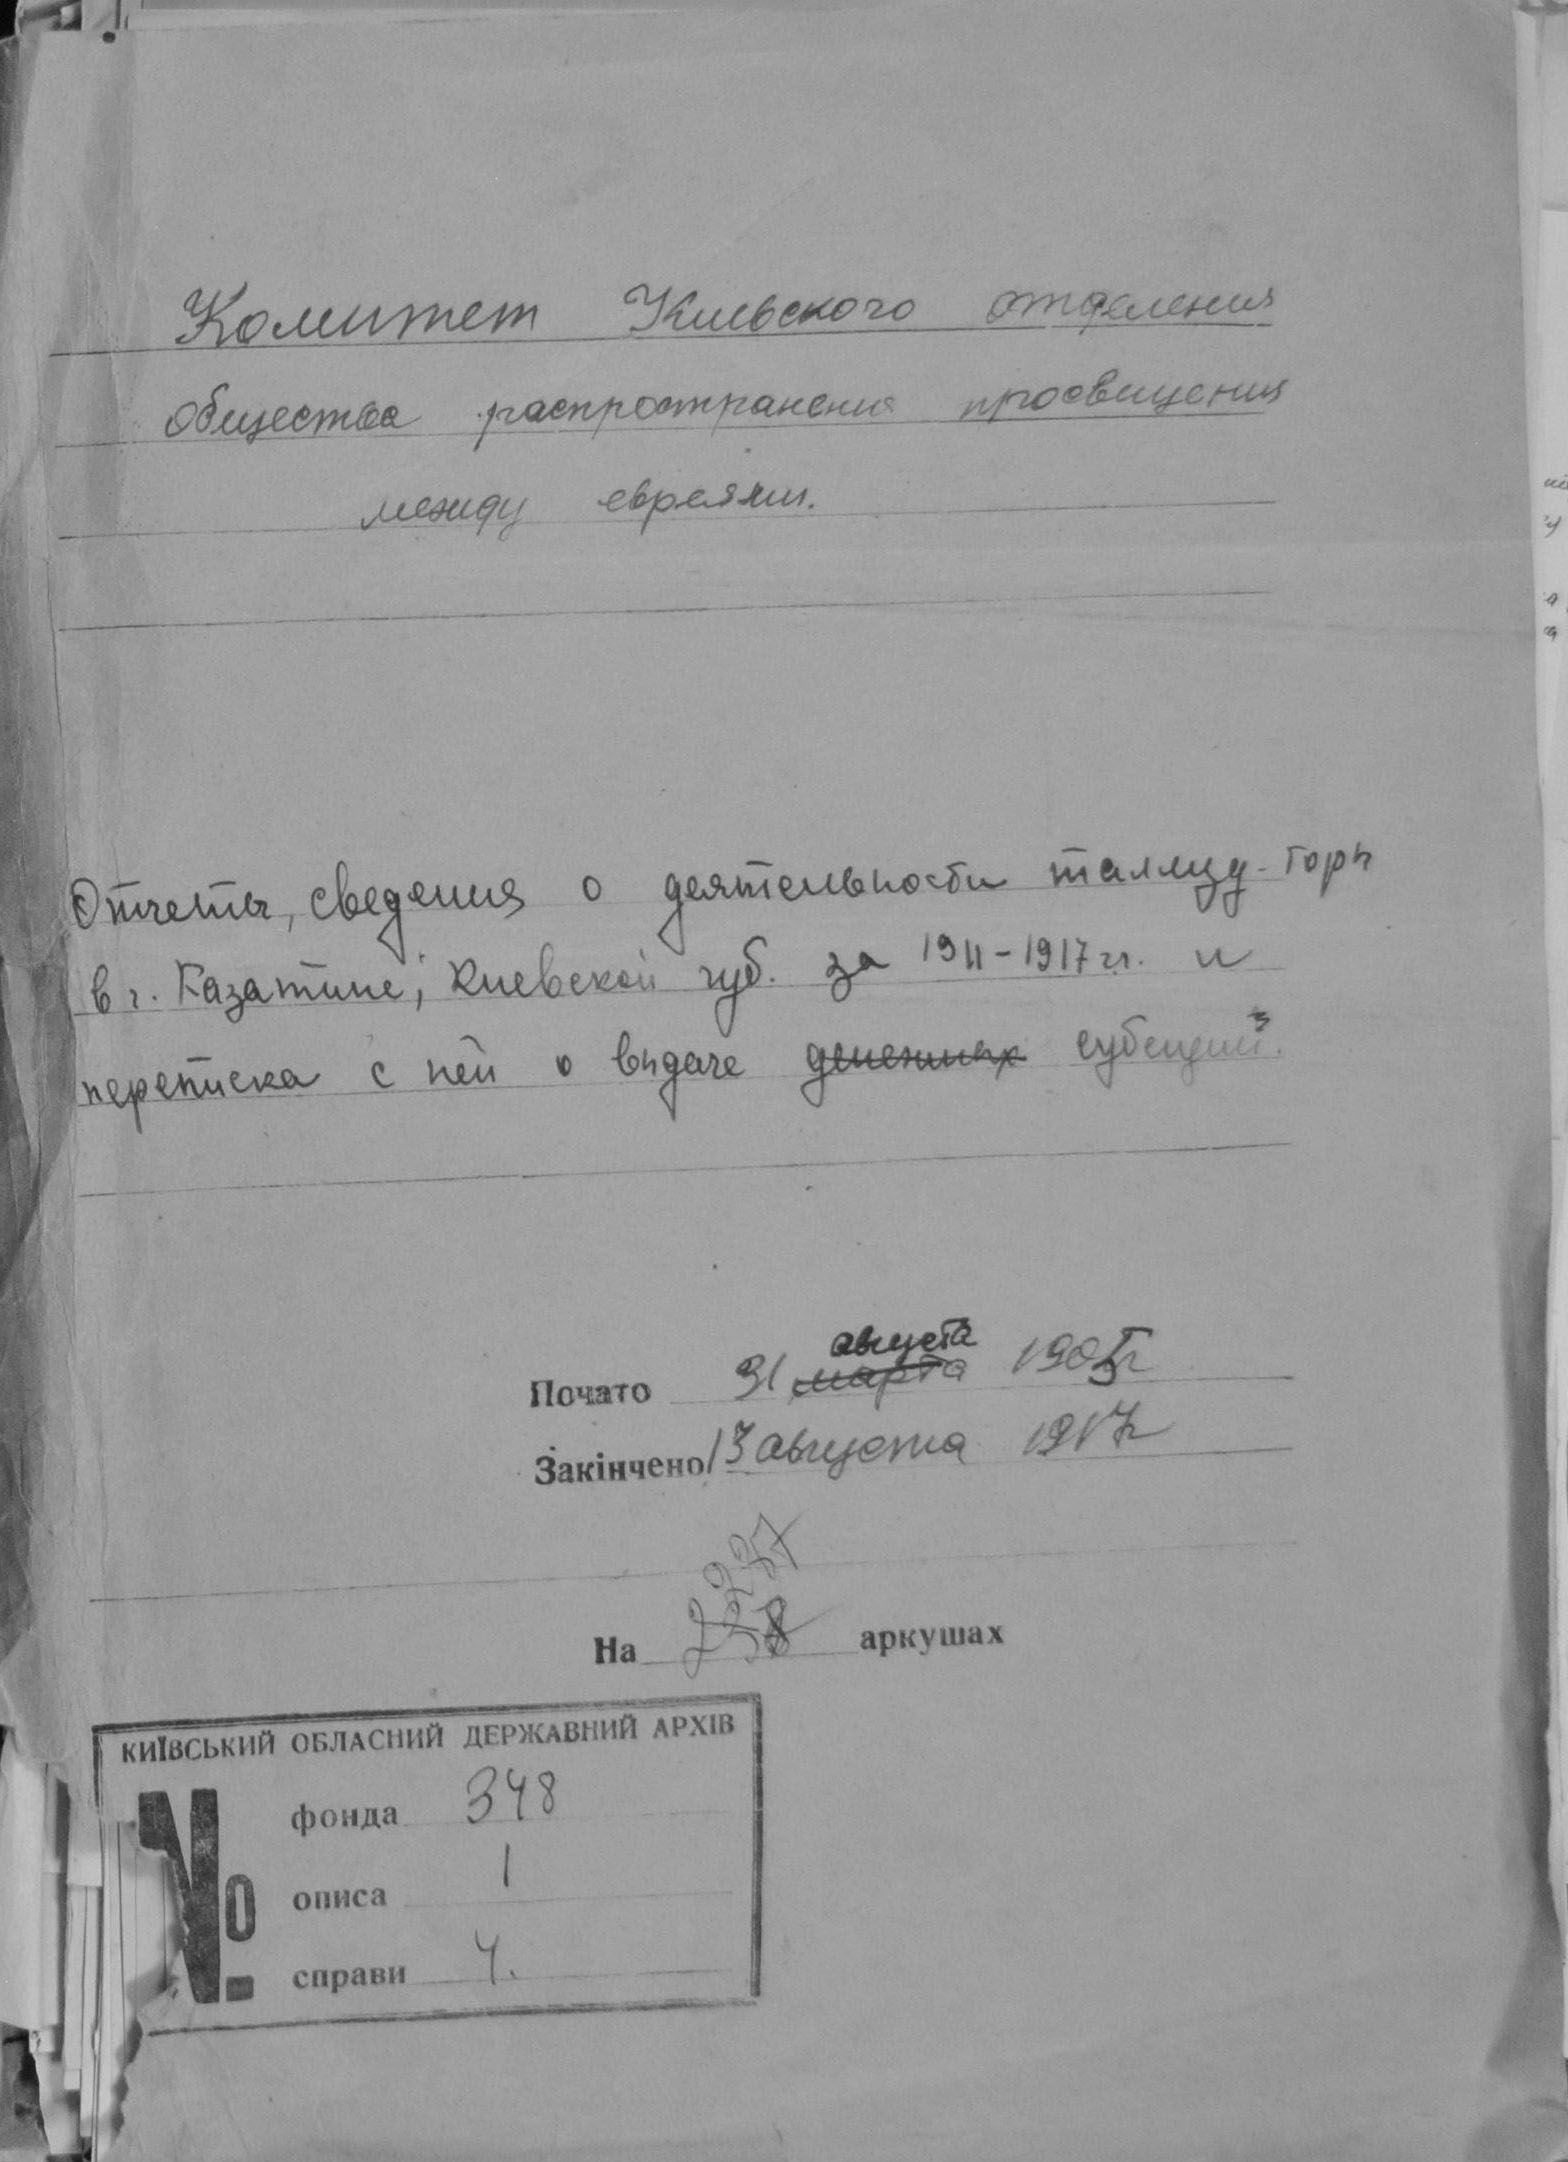 Комитет Киевского отделения
общества распространения просвещения
между евреями.
Отчеты, сведения о деятельности талмуд-торы
в г. Казатине, Киевской губ. за 1911-1917 гг. и
переписка с ней о выдаче денежных субсидий.
августа
Почато 31 марта 1905 г
Закінчено 13 августа 1917 г
237
На аркушах
КИЇВСЬКИЙ ОБЛАСНИЙ ДЕРЖАВНИЙ АРХІВ
№
фонда 348
описа 1
справи 4.